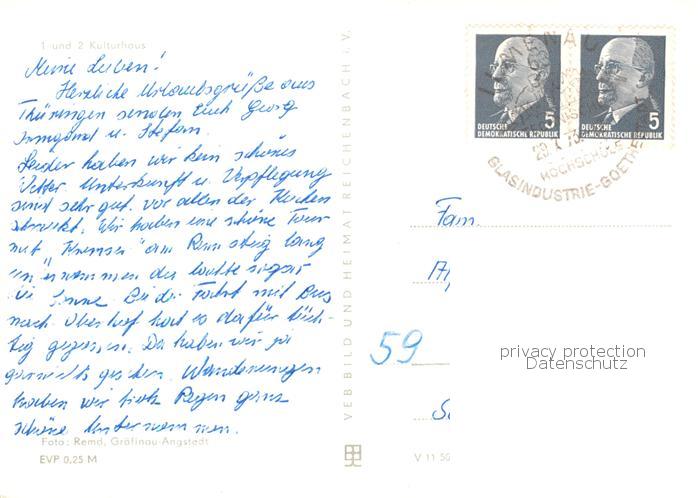 1 und 2 Kulturhaus
Meine Lieben!
Herzliche Urlaubsgrüße aus
Thüringen senden Euch Georg
Irmgard u. Stefan.
Leider haben wir kein schönes
Wetter Unterkunft u. Verpflegung
sind sehr gut. vor allem der Kuchen
schmeckt. Wir haben eine schöne Tour
mit "Kremser" am Rennsteig lang
da wollte sogar
die Sonne. Bei der Fahrt mit Bus
nach Oberhof hat es dafür tüch-
tig gegossen. Da haben wir ja
gar nichts gesehen. Wanderungen
haben wir trotz Regen ganz
schöne unternommen.
Foto: Remd, Gräfinau-Angstedt
EVP 0,25 M
VEB BILD UND HEIMAT REICHENBACH i. V.
V 11 50
DEUTSCHE
DEMOKRATISCHE REPUBLIK
5
DEUTSCHE
DEMOKRATISCHE REPUBLIK
5
ILMENAU
HOCHSCHULE
GLASINDUSTRIE-GOETHE
Fam.
59
privacy protection
Datenschutz